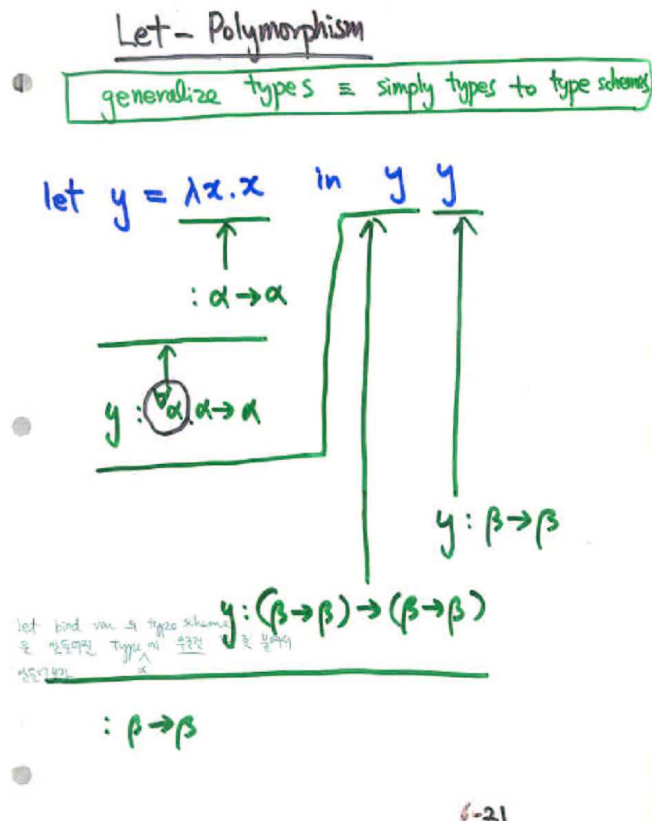 Let - Polymorphism
generalize types ≡ simply types to type schemes
let y = λx.x in y y
: α→α
y : ∀α.α→α
y : β→β
y : (β→β)→(β→β)
let bind var type scheme
type
α
: β→β
6-21